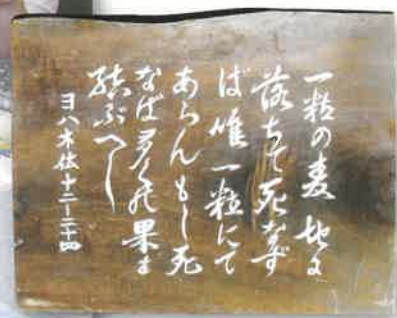 一粒の麦地に
落ちて死なず
ば唯一粒にて
あらんもし死
なば多くの果を
結ぶべし
ヨハネ伝十二ー二十四